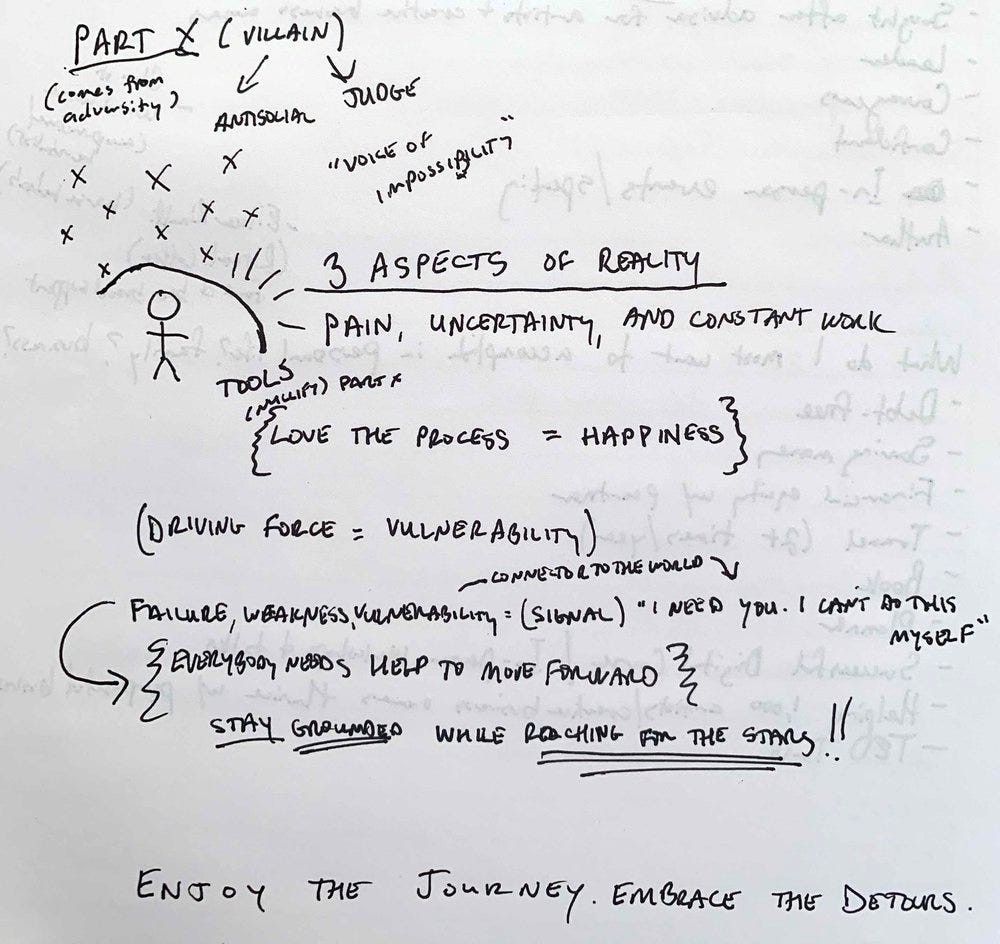 PART X (VILLAIN)
(COMES FROM
ADVERSITY)
ANTISOCIAL
JUDGE
"VOICE OF
IMPOSSIBILITY"
3 ASPECTS OF REALITY
- PAIN, UNCERTAINTY, AND CONSTANT WORK
TOOLS
(NULLIFY) PART X
{LOVE THE PROCESS = HAPPINESS}
(DRIVING FORCE = VULNERABILITY)
CONNECTOR TO THE WORLD
FAILURE, WEAKNESS, VULNERABILITY = (SIGNAL) "I NEED YOU. I CAN'T DO THIS
MYSELF"
{EVERYBODY NEEDS HELP TO MOVE FORWARD}
STAY GROUNDED WHILE REACHING FOR THE STARS!!
ENJOY THE JOURNEY. EMBRACE THE DETOURS.